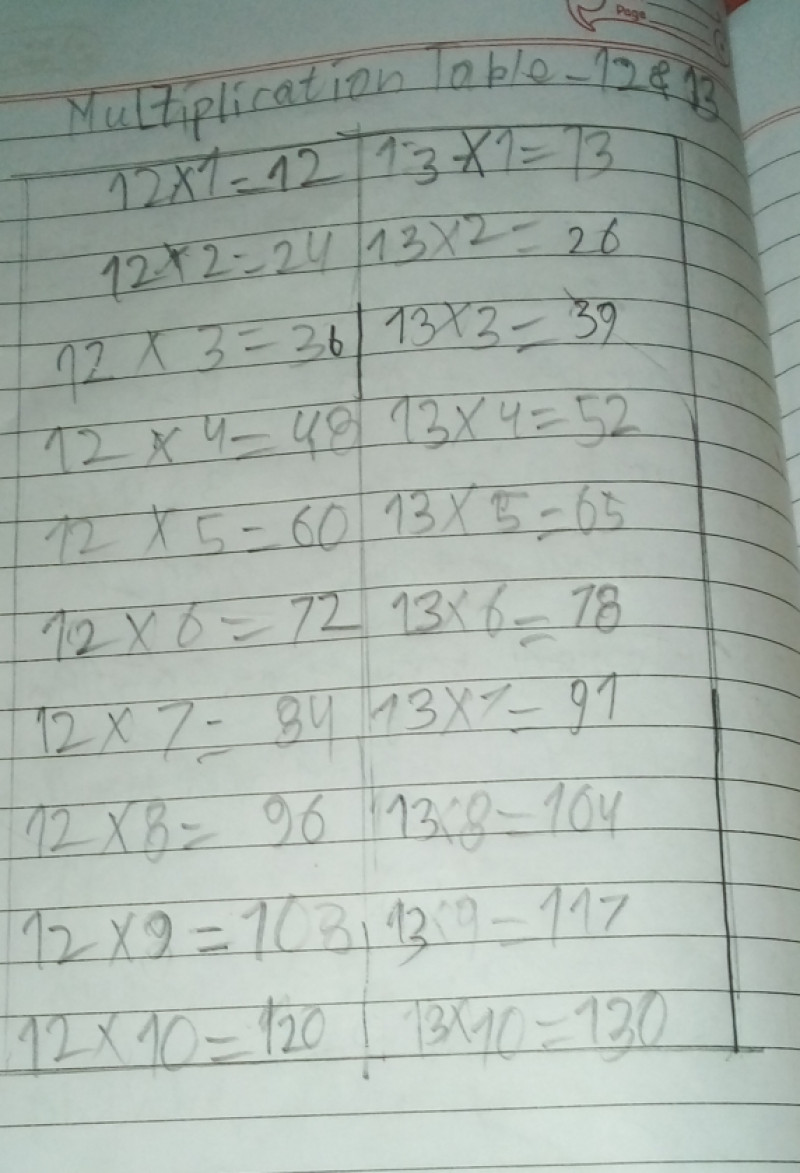 Page
Multiplication Table - 12 & 13
12×1=12 13×1=13
12×2=24 13×2= 26
12 × 3=36 13×3= 39
12 × 4=48 13×4=52
12 × 5=60 13×5=65
12×6=72 13×6= 78
12×7= 84 13×7= 91
12×8= 96 13×8=104
12×9=108 13×9=117
12×10=120 13×10=130